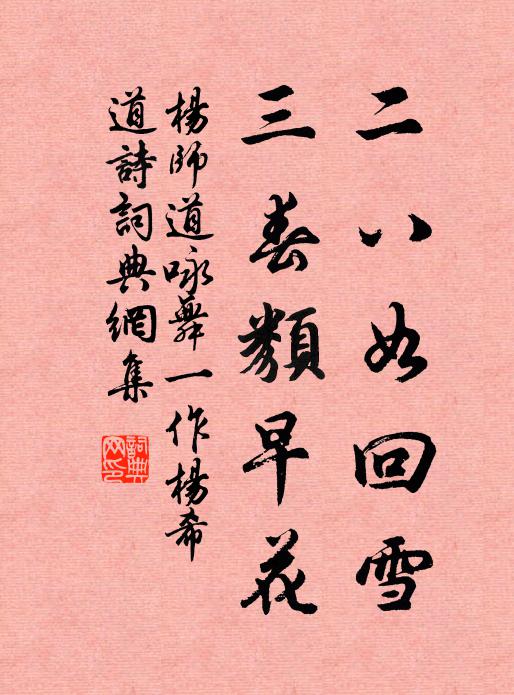 二八如回雪
三春類早花
楊師道咏舞一作楊希
道詩詞典網集
詞典网印